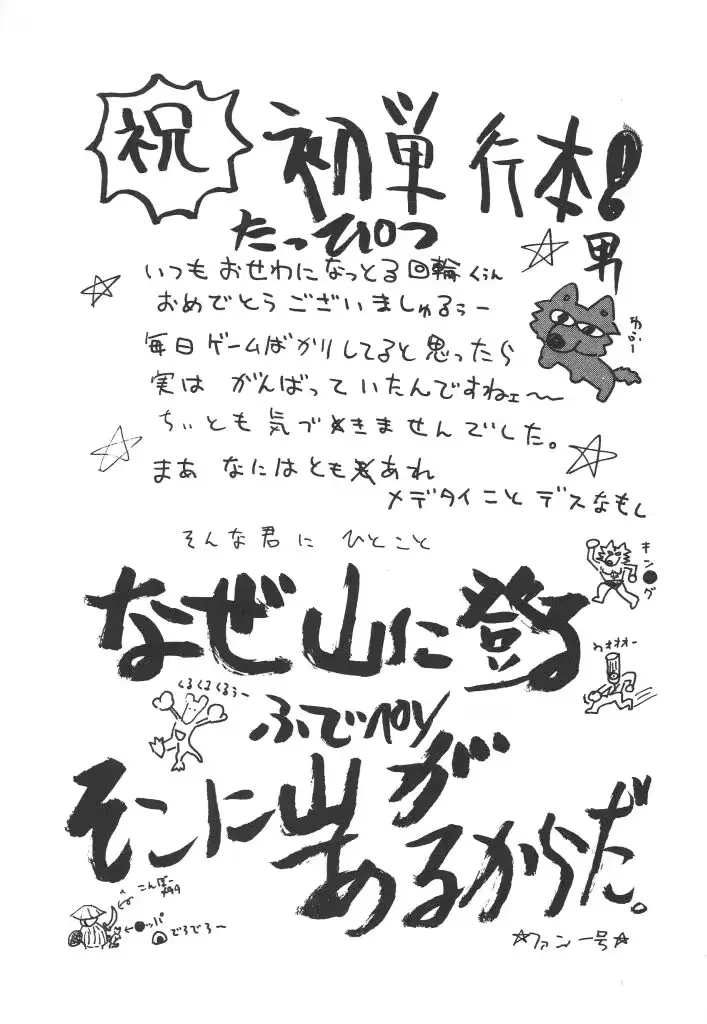 祝
初単行本!
たっぴつ
男
いつも おせわに なっとる 回輪くぅん
おめでとう ございましゅるぅー
わぅぃー
毎日 ゲームばかりしてると思ったら
実は がんばって いたんですねェ〜〜
ちぃとも 気づきませんでした。
まあ なにはともあれ
メデタイこと デスなもし
そんな君に ひとこと
キン●グ
なぜ山に登る
わオオオー
くるくるくるぅー
ふでペン
そこに山が
あるからだ。
こんぼー
←●ッパ
でろでろー
☆ファン一号☆